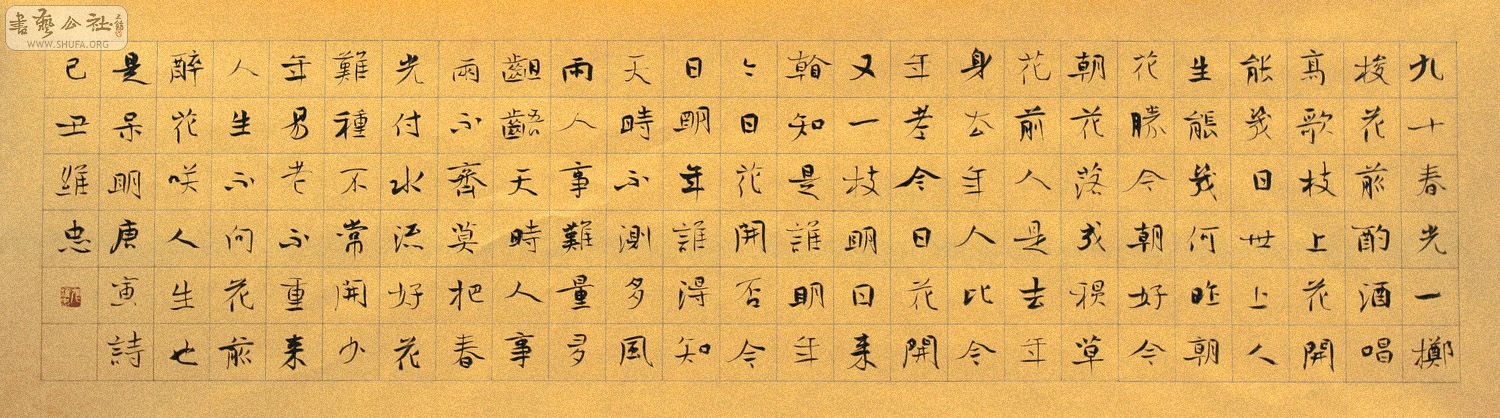 書藝公社
WWW.SHUFA.ORG
九十春光一擲
梭花前酌酒唱
高歌枝上花開
能幾日世上人
生能幾何昨朝
花勝今朝好今
朝花落成草
花前人是去年
身去年人比今
年老今日花開
又一枝明日来
看知是誰明年
今日花開否今
日明年誰得知
天時不測多風
雨人事難量多
齟齬天時人事
兩不齊莫把春
光付水流好花
難種不常開少
年易老不重来
人生不向花前
醉花咲人生也
是呆明唐寅詩
己丑維忠